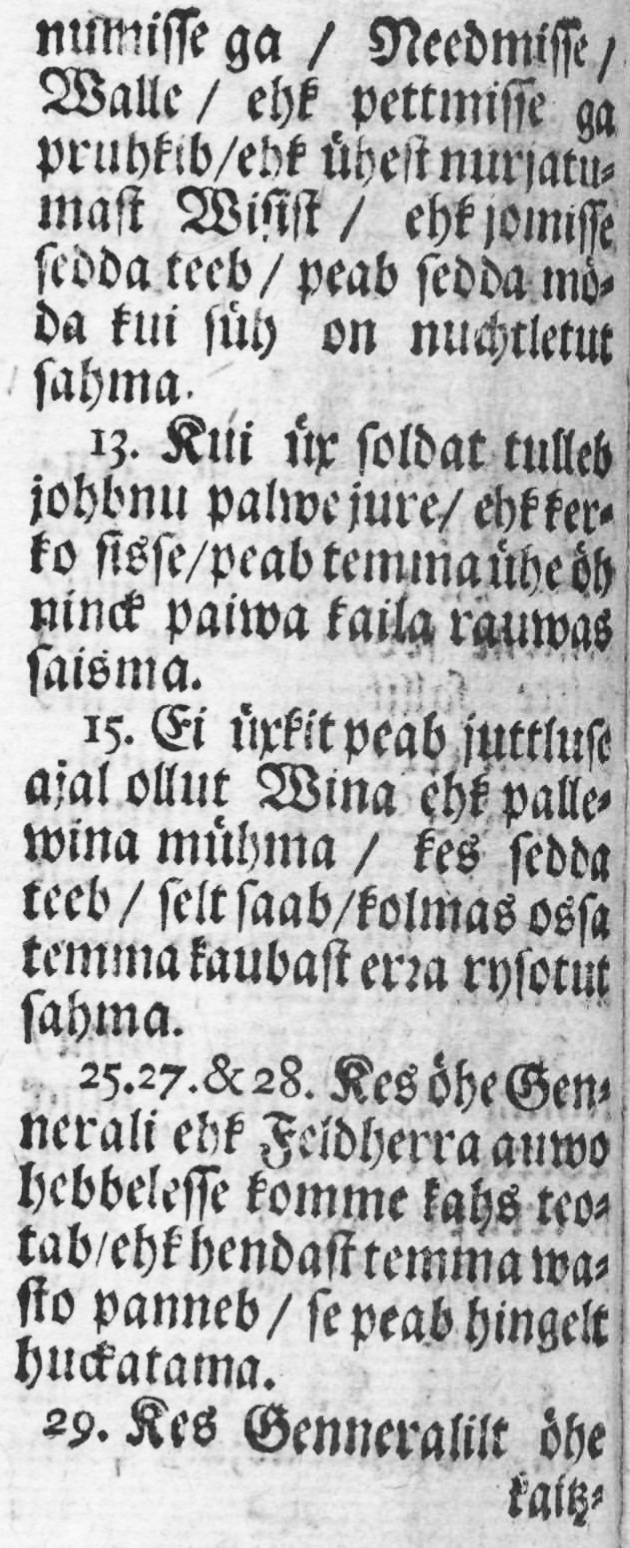 numisse ga / Needmisse /
Walle / ehk pettmisse ga
pruhkib/ehk ühest nurjatu-
mast Wisist / ehk jomisse
sedda teeb / peab sedda mö-
da kui süh on nuchtletut
sahma.
13. Kui üx soldat tulleb
johbnu palwe jure/ ehk ker-
ko sisse/peab temma ühe öh
ninck paiwa kaila rauwas
saisma.
15. Ei üxkit peab juttluse
ajal ollut Wina ehk palle-
wina mühma / kes sedda
teeb / selt saab/kolmas ossa
temma kaubast erra rysotut
sahma.
25.27.&28. Kes öhe Gen-
nerali ehk Feldherra auwo
hebbelesse komme kahs teo-
tab/ehk hendast temma wa-
sto panneb / se peab hingelt
huckatama.
29. Kes Genneralilt öhe
kaitz-